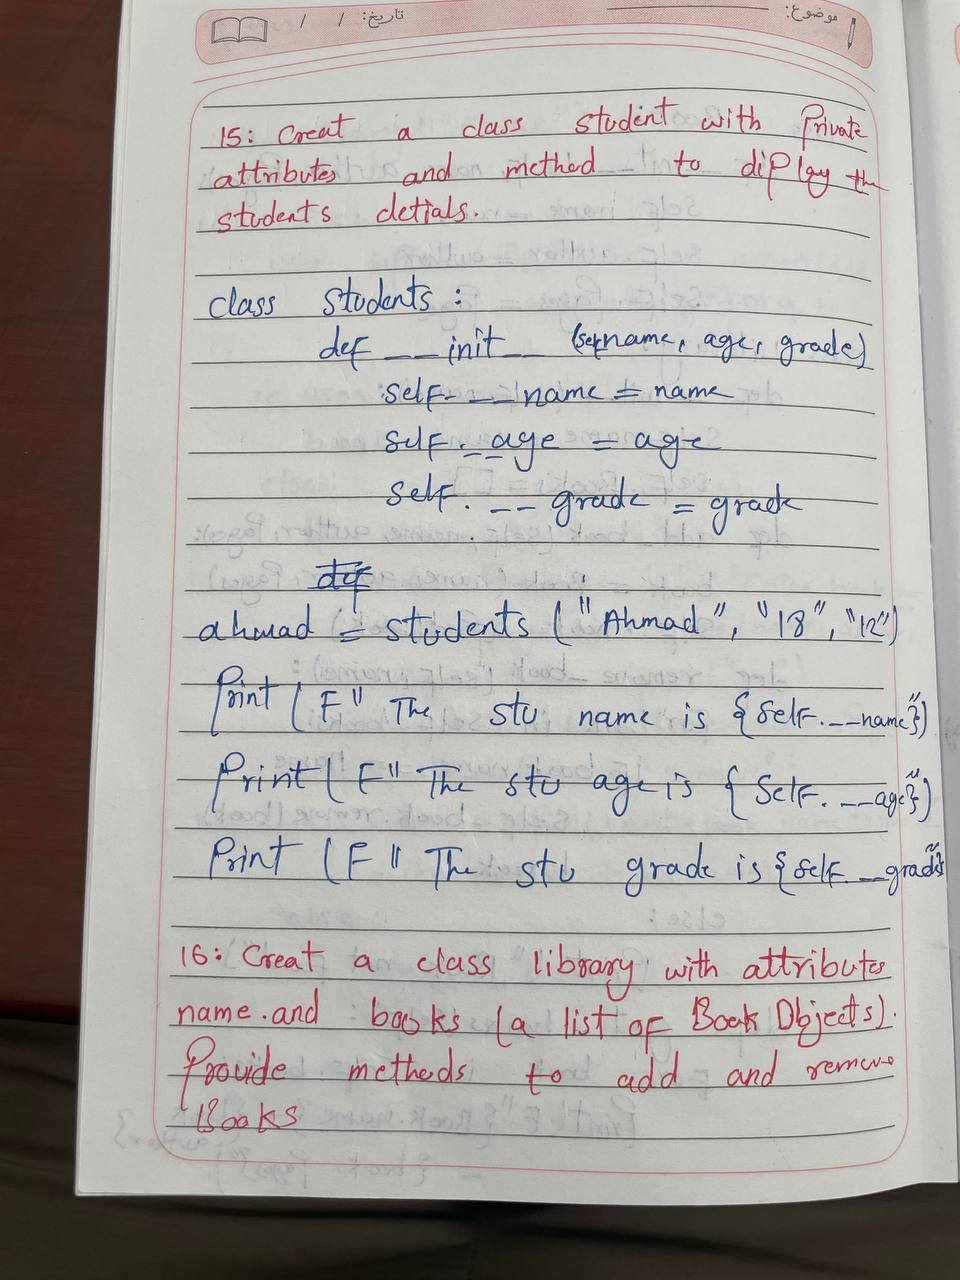 موضوع:
تاریخ: / /
15: Creat a class student with Private
attributes and method to display the
students detials.
class students :
def __init__ (self name, age, grade)
self.__name = name
self.__age = age
self.__grade = grade
def
ahmad = students ("Ahmad", "18", "12")
Print (F" The stu name is {self.__name}")
Print (F" The stu age is {self.__age}")
Print (F" The stu grade is {self.__grade}
16: Creat a class library with attributes
name.and books (a list of Book Objects).
Provide methods to add and remove
Books